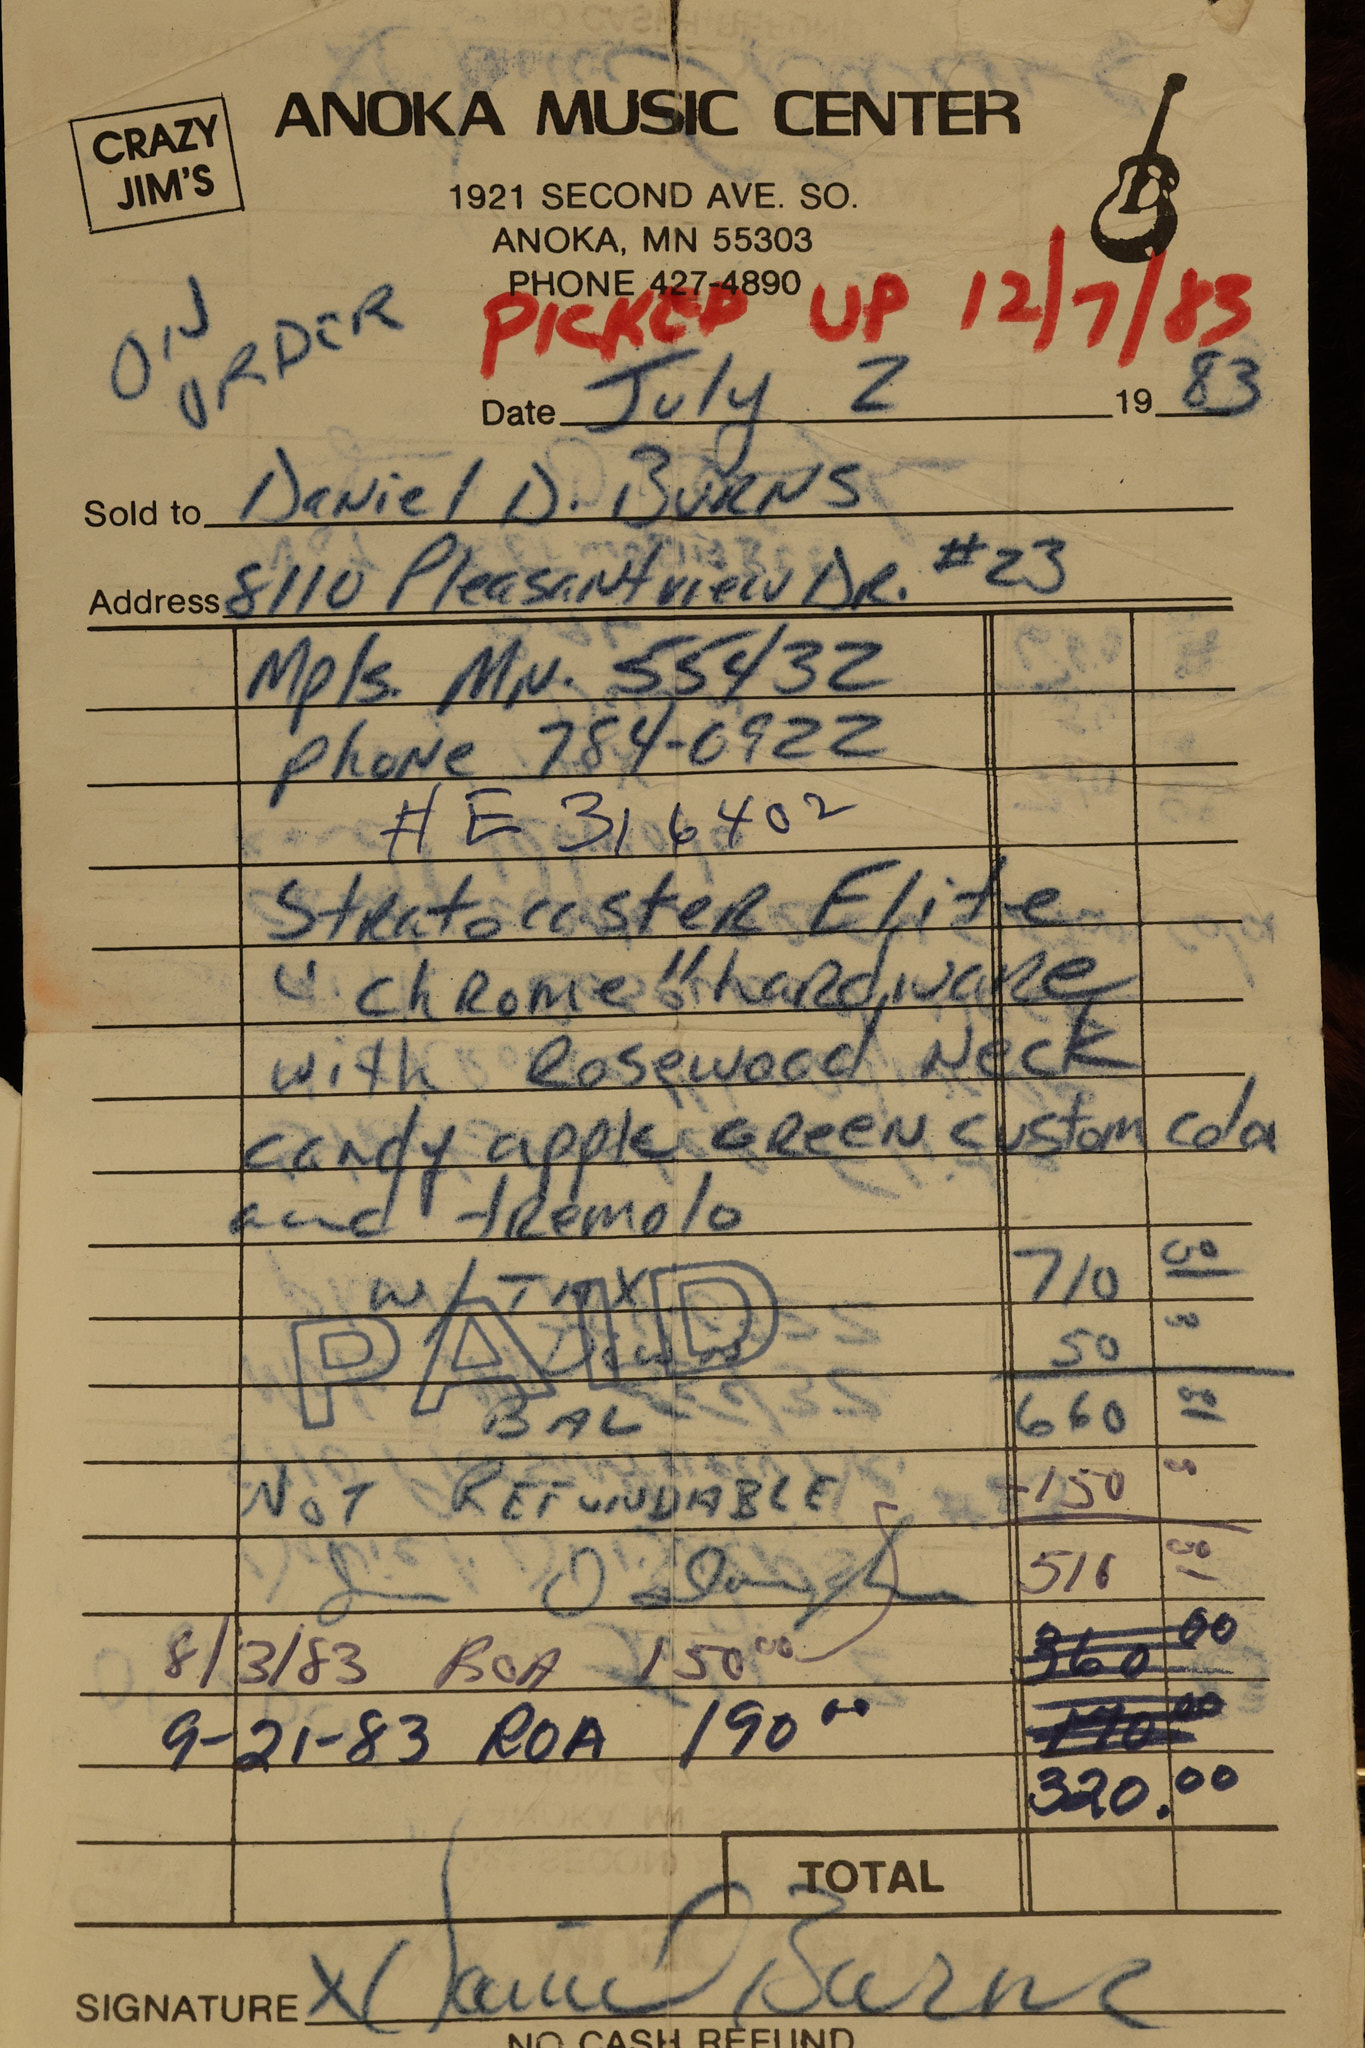 CRAZY JIM'S
ANOKA MUSIC CENTER
1921 SECOND AVE. SO.
ANOKA, MN 55303
PHONE 427-4890
ON ORDER
PICKED UP 12/7/83
Date July 2 19 83
Sold to Daniel D. Burns
Address 8110 Pleasantview Dr. #23
Mpls. Mn. 55432
phone 784-0922
# E 316402
Stratocaster Elite
"chrome" hardware
with Rosewood Neck
candy apple green custom color
and tremolo
W/ TAX 710 00
PAID
Down 50 00
BAL 660 00
NOT REFUNDABLE -150 00
510 00
8/3/83 ROA 150 00 360 00
9-21-83 ROA 190 00 170 00
320.00
TOTAL
SIGNATURE X Daniel D Burns
NO CASH REFUND